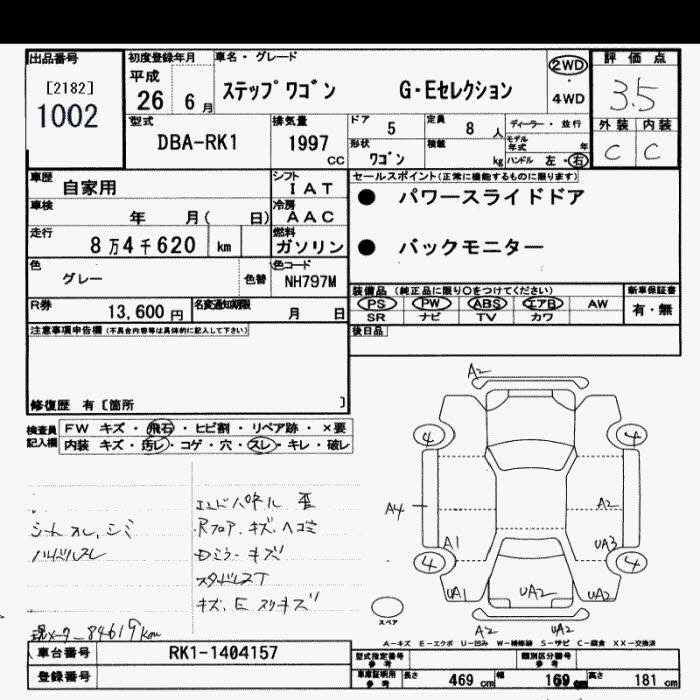 出品番号
[2182]
1002
初度登録年月
平成
26 6月
車名・グレード
ステップワゴン G・Eセレクション
2WD
・
4WD
評価点
3.5
外装 内装
C C
型式
DBA-RK1
排気量
1997
CC
ドア 5
定員 8 人
形状 ワゴン
積載 kg
ディーラー・並行
モデル年式 年
ハンドル 左・右
車歴
自家用
シフト
IAT
車検
年 月( 日)
冷房
AAC
走行
8万4千620 km
燃料
ガソリン
色
グレー
色替
色コード
NH797M
R券
13,600円
名変通知期限
月 日
セールスポイント(正常に機能するものに限ります)
● パワースライドドア
● バックモニター
装備品(純正品に限り○をつけてください)
PS PW ABS エアB AW
SR ナビ TV カワ
新車保証書
有・無
後日品
注意事項申告欄(不具合内容等は具体的に記入して下さい)
修復歴 有〔箇所 〕
検査員
記入欄
FW キズ・飛石・ヒビ割・リペア跡・×要
内装 キズ・汚レ・コゲ・穴・スレ・キレ・破レ
シート スレ、シミ
ハンドルスレ
エンドパネル 歪
Rフロア、キズ、ヘコミ
Dミラーキズ
スタッドレスT
キズ、E スリキズ
現メーター 84619km
A2
4
4
A4
A2
A1
UA3
4
4
UA1
UA2
UA2
A2
UA2
スペア
A-キズ E-エクボ U-凹み W-補修跡 S-サビ C-腐食 XX-交換済
車台番号
RK1-1404157
登録番号
型式指定番号
参考
類別区分番号
参考
車庫証明用
参考
長さ 469 cm
幅 169 cm
高さ 181 cm